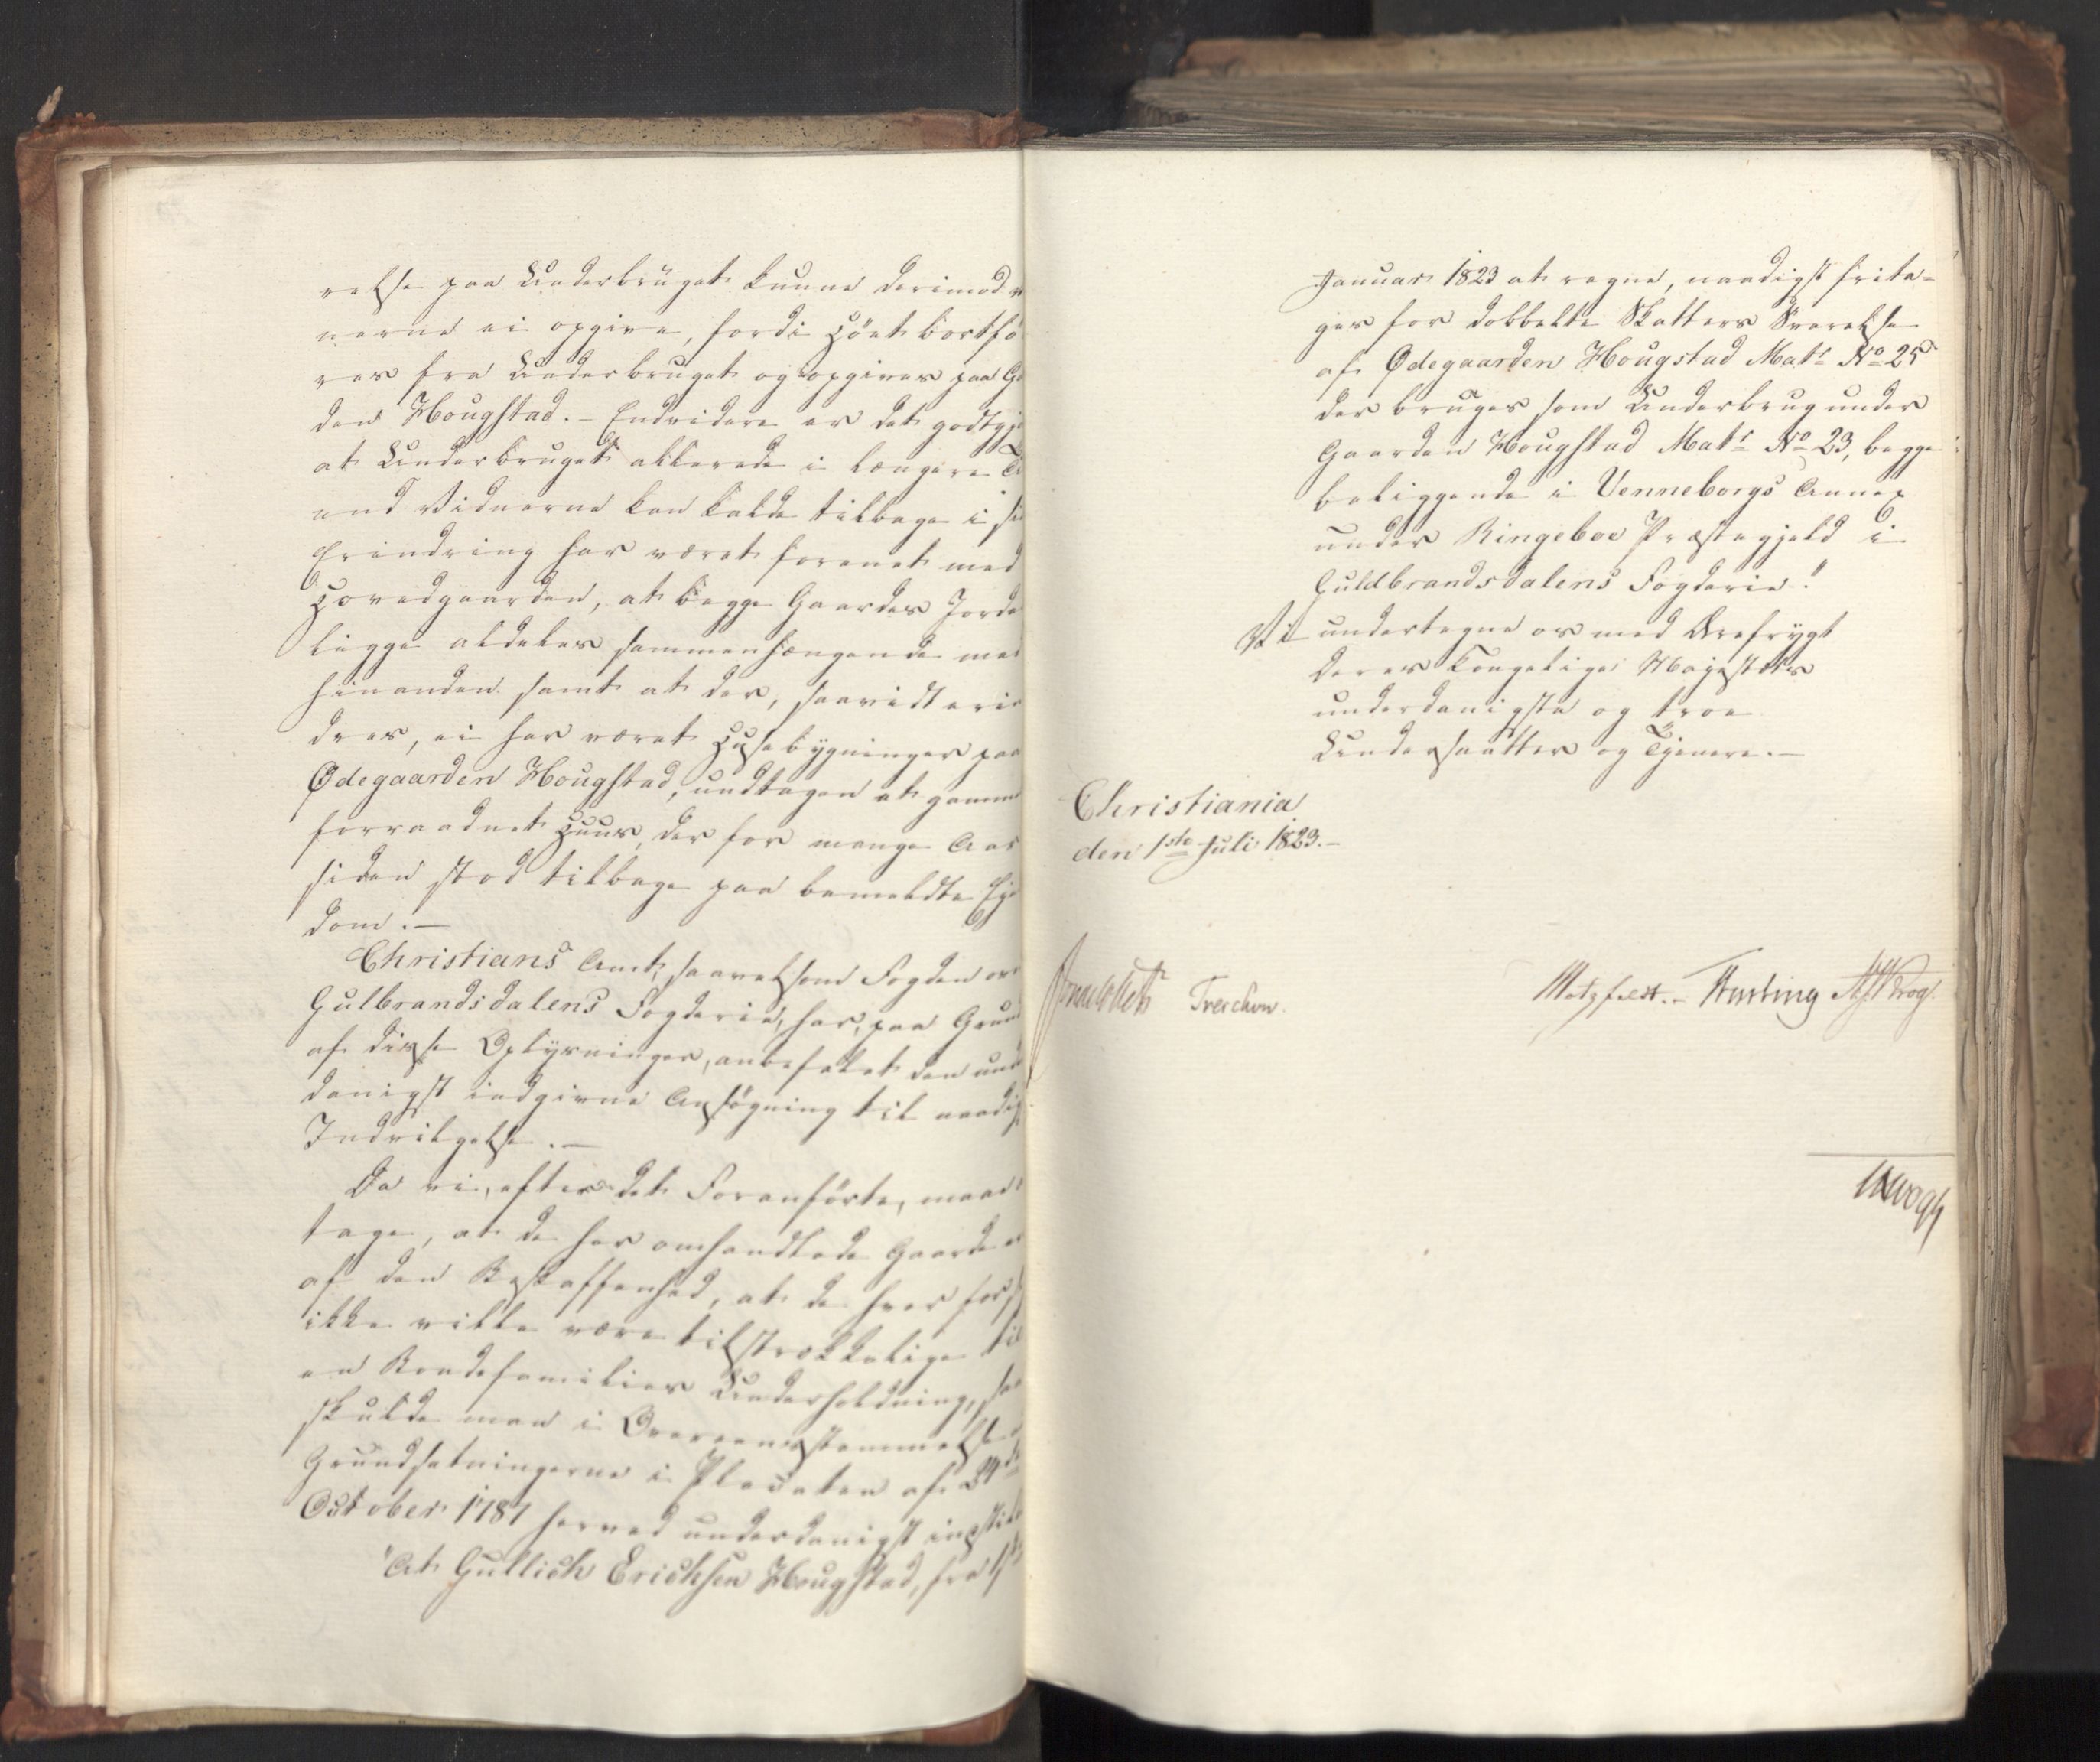 relse paa Underbruget kunne derimod
nerne ei opgive, fordi Höet bortfö
res fra Underbruget og opgives paa Ga
den Hougstad. – Endvidere er det godtgj
at Underbruget allerede i længere Ti
end Vidnerne kan kalde tilbage i si
Erindring har været forenet med
Hovedgaarden, at begge Gaardes Jorde
ligge aldeles sammenhængende med
hinanden samt at der, saavidt erin
dres, ei har været Husebygninger paa
Ødegaarden Hougstad, undtagen et gamme
forraadnet Huus, der for mange Aar
siden stod tilbage paa bemeldte Eje
dom. –
Christians Amt, saavelsom Fogden ov
Gulbrandsdalens Fogderie, har, paa Grund
af disse Oplysninger, anbefalet den und
danigst indgivne Ansögning til naadig
Indvilgelse. –
Da vi, efter det Foranförte, maae
tage, at de her omhandlede Gaarde er
af den Beskaffenhed, at de hver for s
ikke ville være tilstrækkelige til
en Bondefamilies Underholdning, saa
skulde man i Overeensstemmelse
Grundsætningerne i Placaten af 24de
October 1787 herved underdanigst instille
"At Gullich Erichsen Hougstad, fra 1ste
Januar 1823 at regne, naadigst frita-
ges for dobbelte Skatters Svarelse
af Ødegaarden Hougstad Matr No 25
der bruges som Underbrug under
Gaarden Hougstad Matr No 23, begge
beliggende i Venneborgs Annex
under Ringeboe Præstegjeld i
Guldbrandsdalens Fogderie."
Vi undertegne os med Ærefrygt
Deres Kongelige Majestæts
underdanigste og troe
Undersaatter og Tjenere. –
Christiania
den 1ste Juli 1823. –
Treschow. Motzfeldt. – Krog.